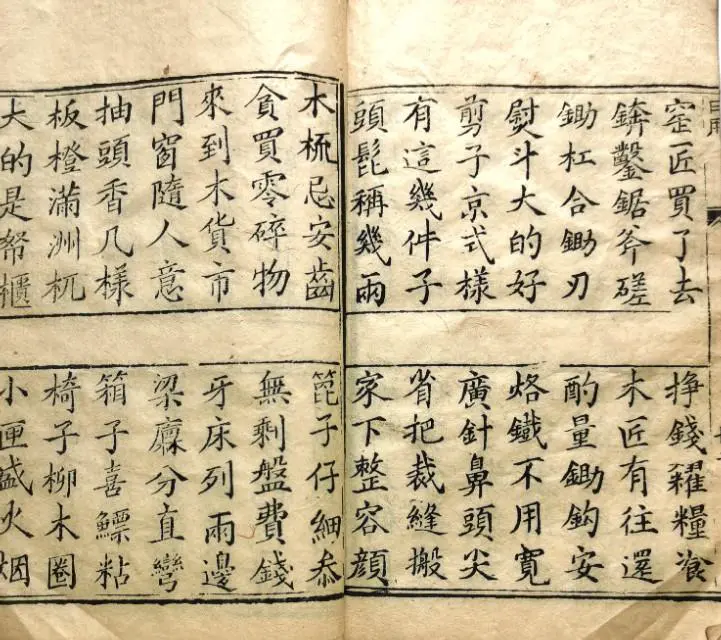 窑匠買了去
掙錢糴糧飡
錛鑿鋸斧磋
木匠有往還
鋤杠合鋤刃
酌量鋤鈎安
熨斗大的好
烙鐵不用寬
剪子京式樣
廣針鼻頭尖
有這幾件子
省把裁縫搬
頭髢稱幾兩
家下整容顏
木梳忌安齒
篦子仔細忝
貪買零碎物
無剩盤費錢
來到木貨市
牙床列兩邊
門窗隨人意
梁廩分直彎
抽頭香几樣
箱子喜鰾粘
板橙滿洲杌
椅子柳木圈
大的是帑櫃
小匣盛火烟